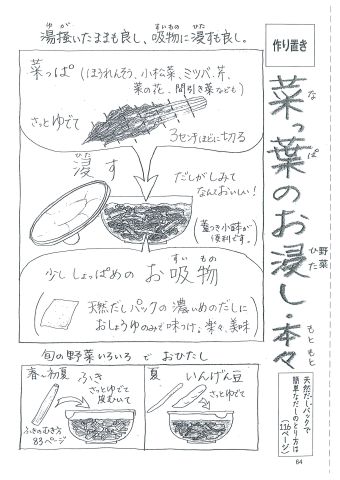 湯掻いたままも良し、吸物に浸すも良し。
ゆが
すいもの
ひた
作り置き
菜っ葉のお浸し・本々
な
ぱ
ひた
もともと
野菜
天然だしパックで
簡単なだしのとり方は
(116ページ)
菜っぱ(ほうれんそう、小松菜、ミツバ、芹、
菜の花、間引き菜なども)
さっとゆでて
3センチほどに切る
ひた
浸す
だしがしみて
なんておいしい!
(蓋つき小鉢が
便利です。)
すいもの
少ししょっぱめのお吸物
(天然だしパックの濃いめのだしに
おしょうゆのみで味つけ。楽々、美味)
旬の野菜いろいろでおひたし
春〜初夏 ふき
さっとゆでて
皮むいて
ふきのむき方
83ページ
夏 いんげん豆
さっとゆでて
64